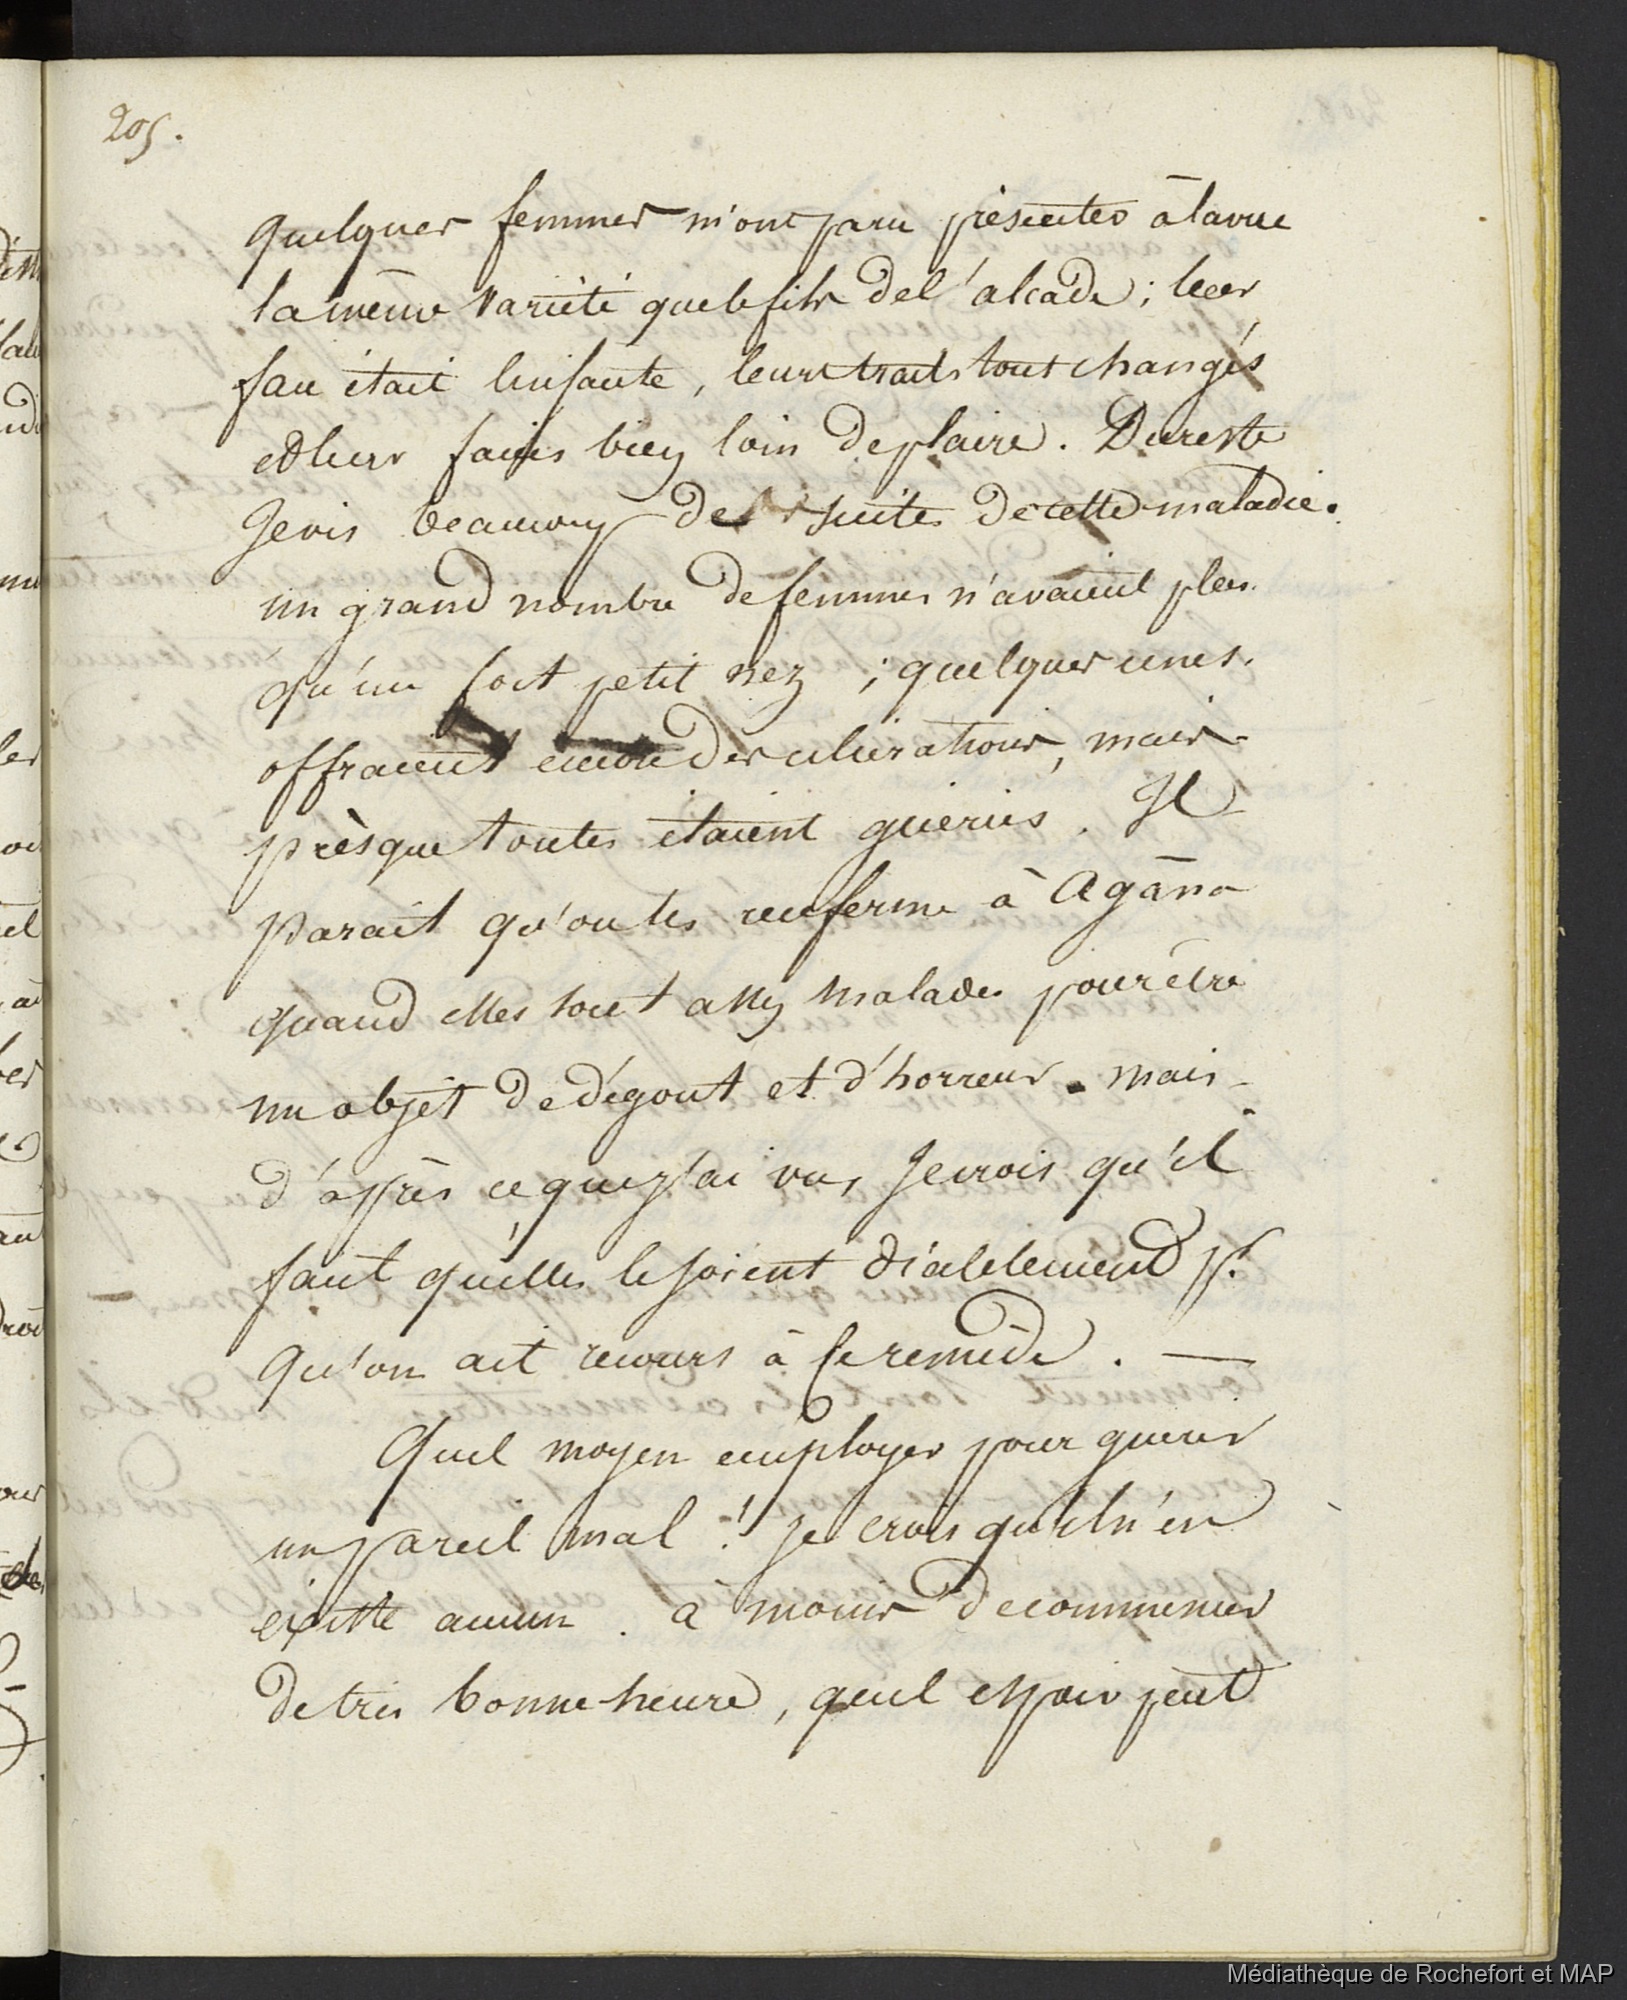 205.
quelques femmes m'ont paru présenter à la vue
la même variété que le fils de l'alcade ; leur
face était luisante, leurs traits tout changés
et leur faciès bien loin de plaire. Du reste
Je vis beaucoup de suites de cette maladie.
un grand nombre de femmes n'avaient plus
qu'un fort petit nez ; quelques unes
offraient encore des ulcérations, mais
prèsque toutes étaient guéries. Il
parait qu'on les renferme à Agãna
quand elles sont assez malades pour être
un objet de dégout et d'horreur. mais
d'après ce que j'ai vu, Je crois qu'il
faut qu'elles le soient diablement pr.
qu'on ait recours à ce remède. —
Quel moyen employer pour guérir
un pareil mal ! je crois qu'il n'en
existe aucun. à moins de commencer
de très bonne heure, quel espoir peut
Médiathèque de Rochefort et MAP